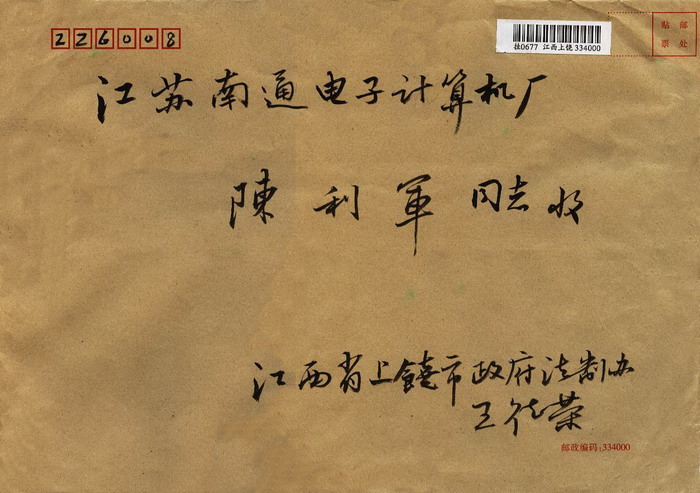 226008
贴 邮
票 处
挂0677 江西上饶 334000
江苏南通电子计算机厂
陳利軍 同志 收
江西省上饒市政府法制办
王德荣
邮政编码:334000